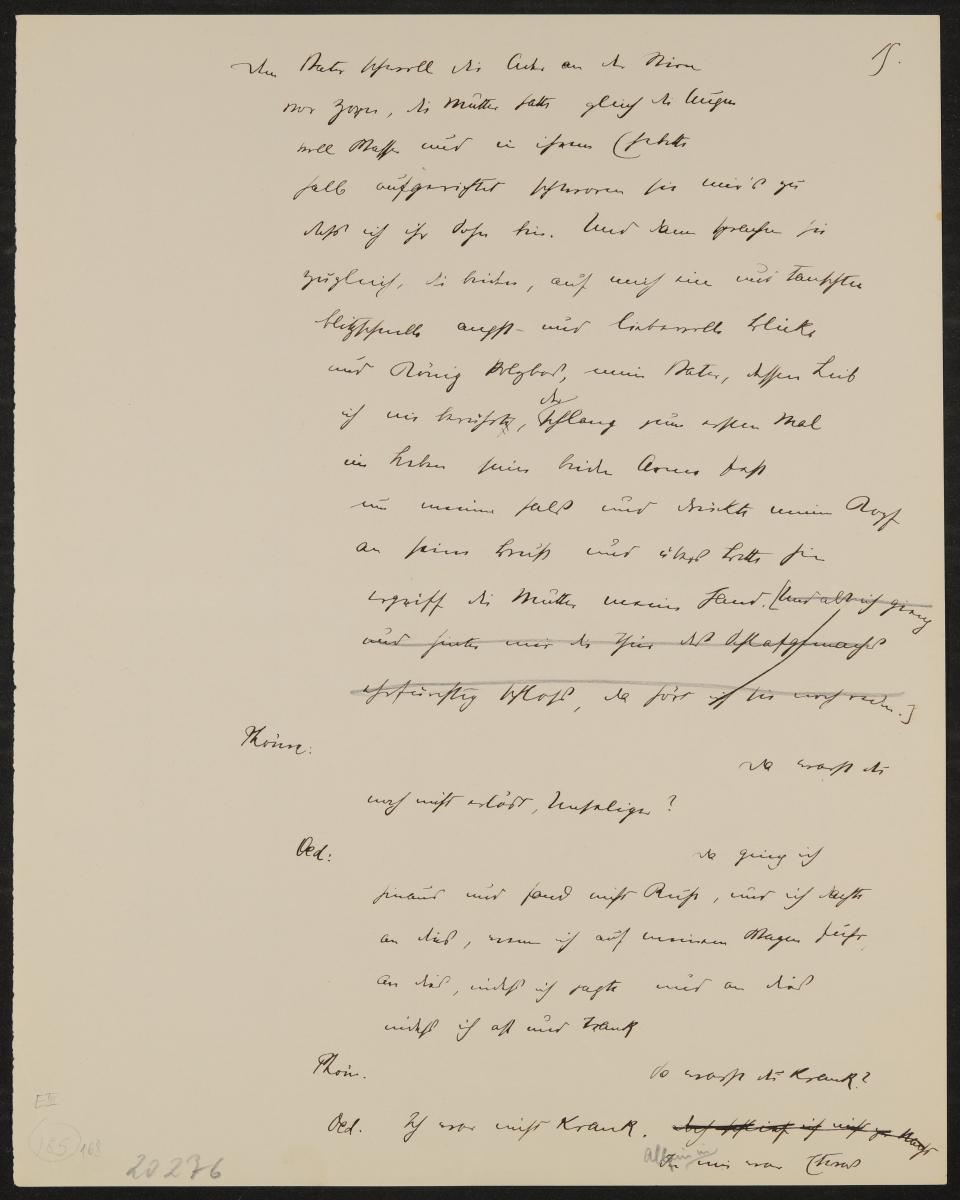 15.
Dem Vater schwoll die Ader an der Stirn
vor Zorn, die Mutter hatte gleich die Augen
voll Wasser und in ihrem Ehebette
halb aufgerichtet schworen sie mir's zu
daß ich ihr Sohn bin. Und dann sprachen sie
zugleich, die beiden, auf mich ein und tauschten
blitzschnelle angst- und liebevolle Blicke
und König Polybos, mein Vater, dessen Leib
ich nie berührte, der schlang zum ersten Mal
im Leben seine beiden Arme fast
um meinen Hals und drückte meinen Kopf
an seine Brust und übers Bette hin
ergriff die Mutter meine Hand. [Und als ich ging
und hinter mir die Thür des Schlafgemachs
ehrfürchtig schloß, da hört ich sie noch reden.]
Phönix:
Da warst du
noch nicht erlöst, Unseliger?
Oed:
Da ging ich
hinaus und fand nicht Ruh, und ich dachte
an dies, wenn ich auf meinem Wagen fuhr,
an dies, indeß ich jagte und an dies
indeß ich aß und trank
Phön.
So warst du krank?
Oed. Ich war nicht krank.
in mir war etwas
E III
185 169
20276